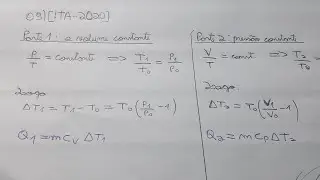 09)[ITA-2020]
Parte 1: a volume constante
P/T = constant ⟹ T1/T0 = P1/P0
Logo
ΔT1 = T1 - T0 = T0 (P1/P0 - 1)
Q1 = m CV ΔT1
Parte 2: pressão constante
V/T = const ⟹ T2/T0 =
Logo
ΔT2 = T0 (V1/V0 - 1)
Q2 = m CP ΔT2